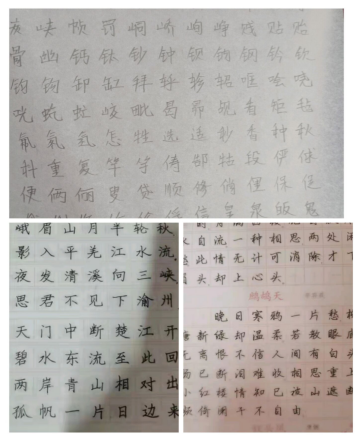 峡 帧 罚 峒 峤 峋 峥 贱 贴 贻
骨 幽 钙 钛 钞 钟 钡 钢 钦
钧 钩 卸 缸 拜
毗 曷 看 矩 毡
氟 氧 氢 怎 牲 选 适 秒 香 种 秋
科 重 复 竿 竽 段 俨 俅
便 俩 俪 叟 贷 顺 修 俏 俚 保 促
峨眉山月半轮秋
影入平羌江水流。
夜发清溪向三峡，
思君不见下渝州
天门中断楚江开
碧水东流至此回
两岸青山相对出
孤帆一片日边来
自流一种相思两处闲
此情无计可消除才下
眉头却上心头
鹧鸪天
晚日寒鸦一片愁柳
塘新绿却温柔若教眼底
无离恨不信人间有白头
肠已断泪难收相思重上
小红楼情知已被山遮断
频倚阑干不自由